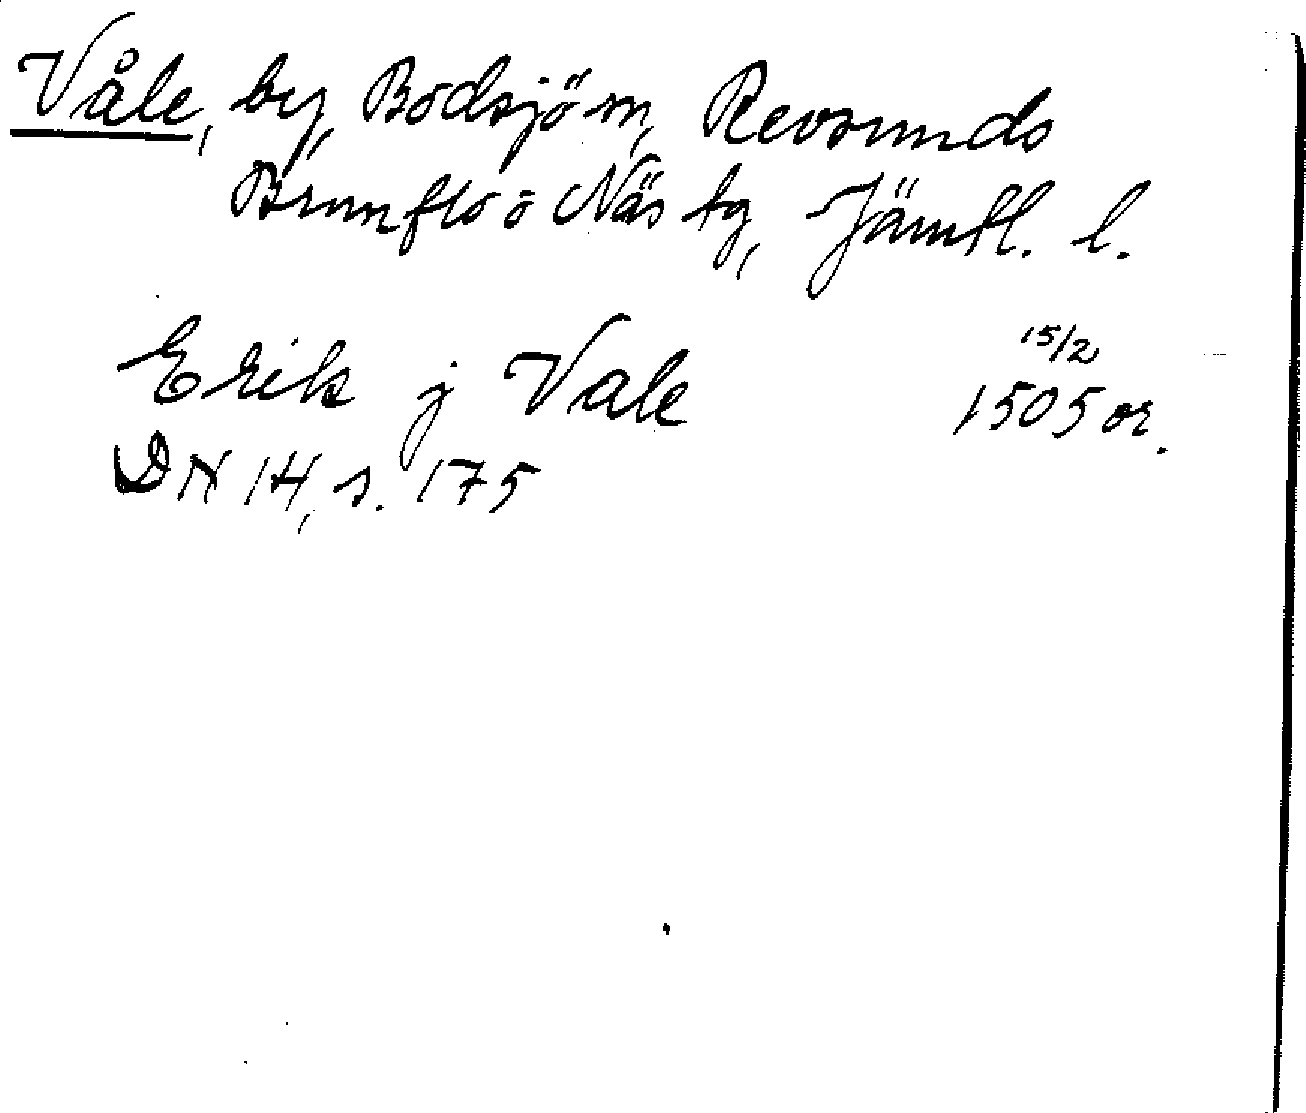 Våle, by, Bodsjö sn, Revsunds
Brunflo o Näs tg, Jämtl. l.
Erik j Vale 15/2 1505 or.
DN 14, s. 175